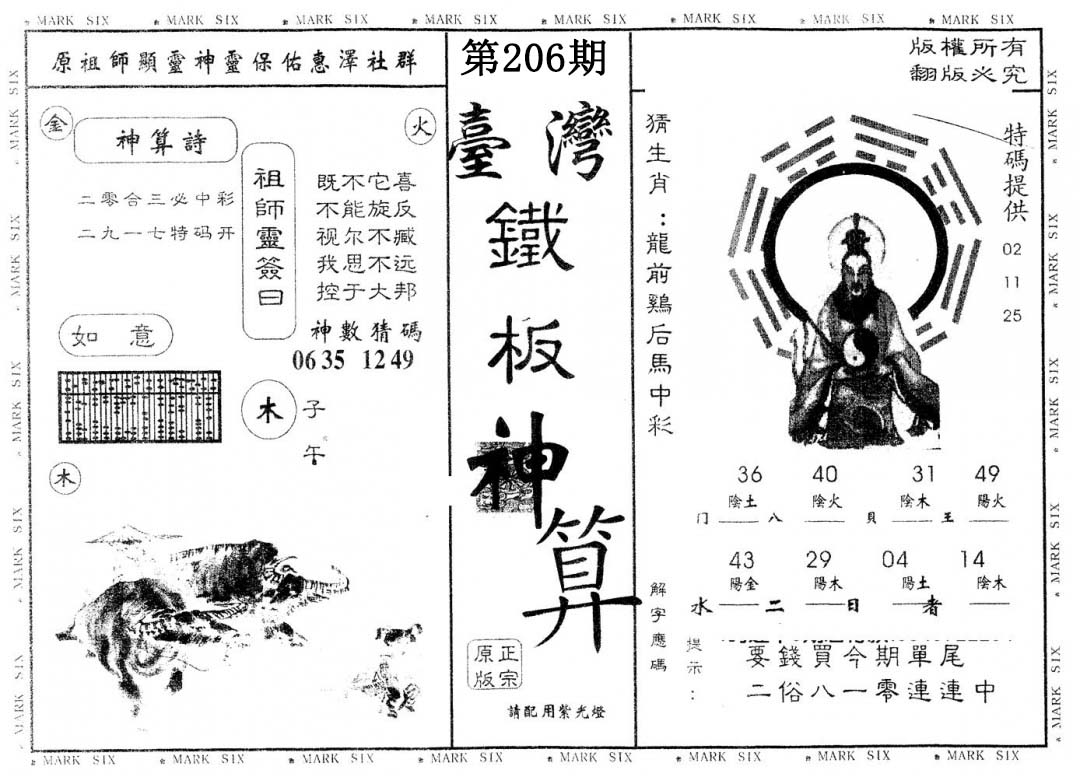 MARK SIX MARK SIX MARK SIX MARK SIX MARK SIX MARK SIX MARK SIX MARK SIX
原祖師顯靈神靈保佑惠澤社群
金
火
神算詩
二零合三必中彩
二九一七特码开
祖師靈簽曰
既不它喜
不能旋反
视尔不臧
我思不远
控于大邦
神數猜碼
06 35 12 49
如 意
木
子
午
木
第206期
臺灣
鐵
板
神
算
正宗
原版
請配用紫光燈
版權所有
翻版必究
猜生肖：龍前鷄后馬中彩
特碼提供
02
11
25
36 40 31 49
陰土 陰火 陰木 陽火
门 八 貝 王
43 29 04 14
陽金 陽木 陽土 陰木
水 二 日 者
解字應碼
提示：
要錢買今期單尾
二俗八一零連連中
MARK SIX MARK SIX MARK SIX MARK SIX MARK SIX MARK SIX MARK SIX MARK SIX
MARK SIX MARK SIX MARK SIX MARK SIX MARK SIX
MARK SIX MARK SIX MARK SIX MARK SIX MARK SIX